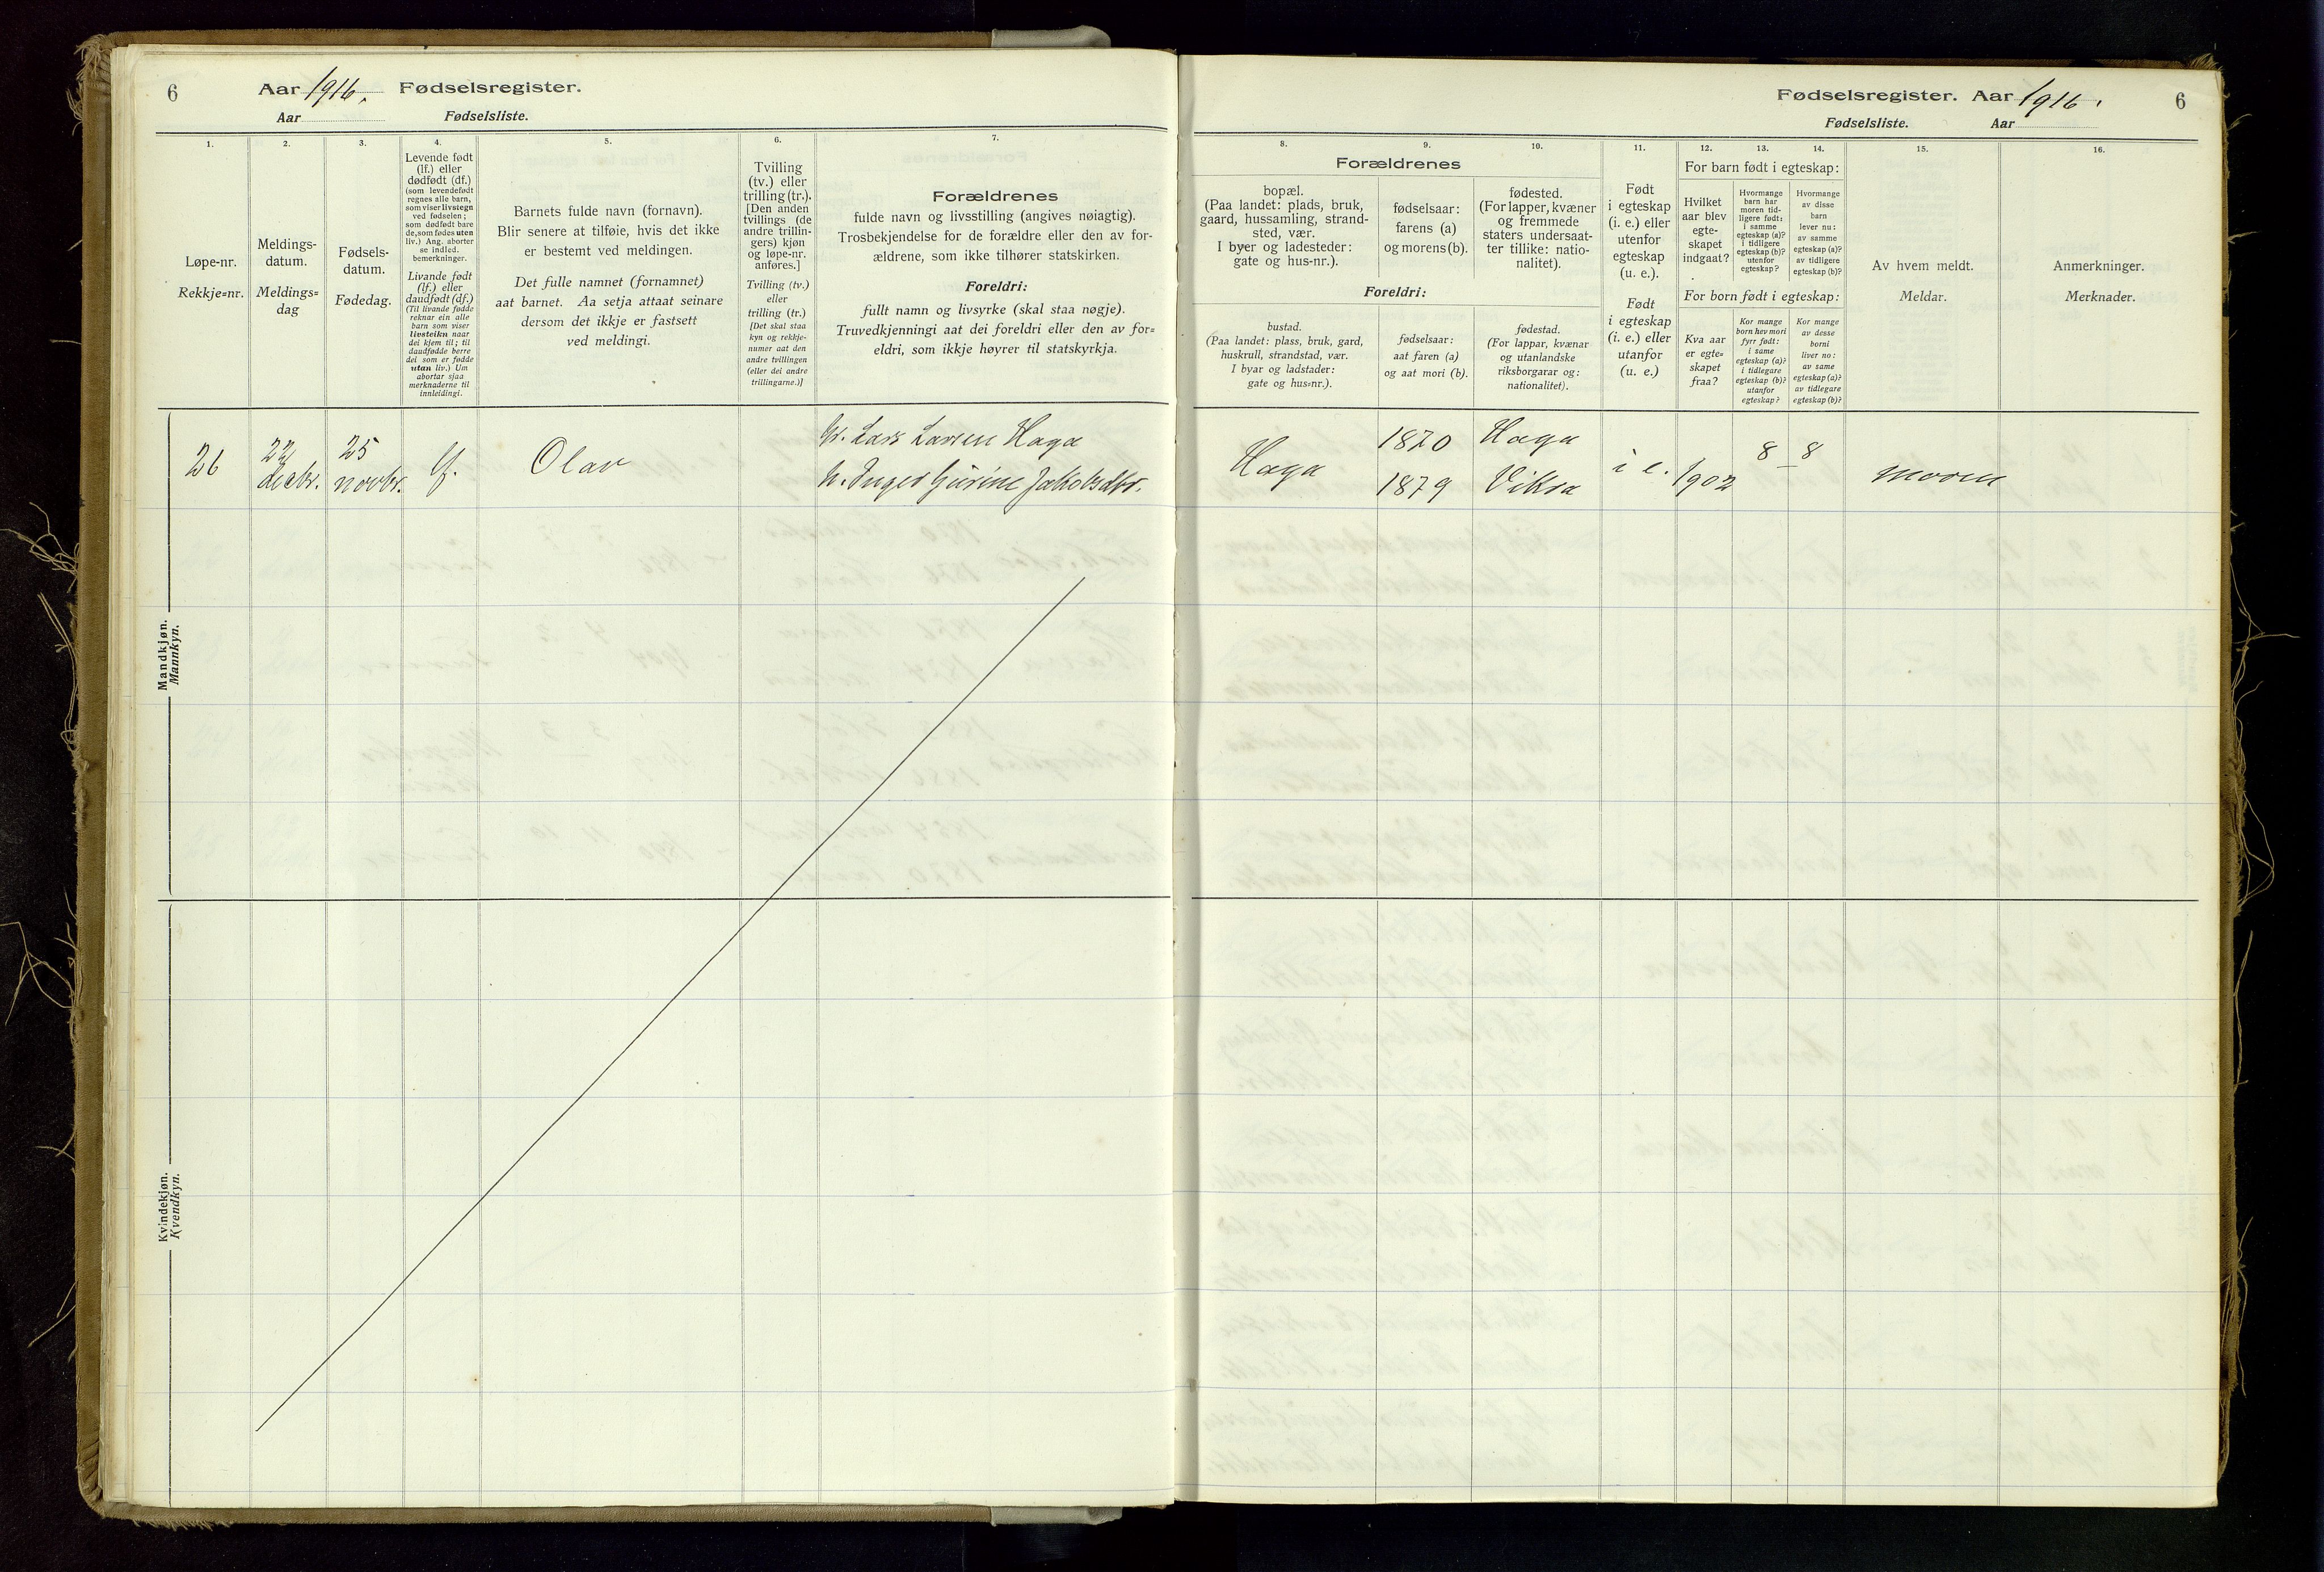 6
Aar 1916. Fødselsregister.
Aar Fødselsliste.
1.
Løpe-nr.
Rekkje=nr.
2.
Meldings-
datum.
Meldings=
dag
3.
Fødsels-
datum.
Fødedag.
4.
Levende født
(lf.) eller
dødfødt (df.)
(som levendefødt
regnes alle barn,
som viser livstegn
ved fødselen;
som dødfødt bare
de, som fødes uten
liv.) Ang. aborter
se indled.
bemerkninger.
Livande født
(lf.) eller
daudfødt (df.)
(Til livande fødde
reknar ein alle
barn som viser
livsteikn naar
dei kjem til; til
daudfødde berre
dei som er fødde
utan liv.) Um
abortar sjaa
merknaderne til
innleidingi.
5.
Barnets fulde navn (fornavn).
Blir senere at tilføie, hvis det ikke
er bestemt ved meldingen.
Det fulle namnet (fornamnet)
aat barnet. Aa setja attaat seinare
dersom det ikkje er fastsett
ved meldingi.
6.
Tvilling
(tv.) eller
trilling (tr.).
[Den anden
tvillings (de
andre trillin-
gers) kjøn
og løpe-nr.
anføres.]
Tvilling (tv.)
eller
trilling (tr.)
[Det skal staa
kyn og rekkje-
numer aat den
andre tvillingen
(eller dei andre
trillingarne.)]
7.
Forældrenes
fulde navn og livsstilling (angives nøiagtig).
Trosbekjendelse for de forældre eller den av for-
ældrene, som ikke tilhører statskirken.
Foreldri:
fullt namn og livsyrke (skal staa nøgje).
Truvedkjenningi aat dei foreldri eller den av for=
eldri, som ikkje høyrer til statskyrkja.
Mandkjøn.
Mannkyn.
26
22
decbr.
25
novbr.
lf.
Olav
Lars Larsen Haga
Inger Gurine Jakobsdtr.
Kvindekjøn.
Kvendkyn.
Fødselsregister. Aar 1916. 6
Fødselsliste. Aar
8.
9.
10.
Forældrenes
bopæl.
(Paa landet: plads, bruk,
gaard, hussamling, strand-
sted, vær.
I byer og ladesteder:
gate og hus-nr.).
fødselsaar:
farens (a)
og morens (b).
fødested.
(For lapper, kvæner
og fremmede
staters undersaat-
ter tillike: natio-
nalitet).
Foreldri:
bustad.
(Paa landet: plass, bruk, gard,
huskrull, strandstad, vær.
I byar og ladstader:
gate og hus=nr.).
fødselsaar:
aat faren (a)
og aat mori (b).
fødestad.
(For lappar, kvænar
og utanlandske
riksborgarar og:
nationalitet).
11.
Født
i egteskap
(i. e.) eller
utenfor
egteskap
(u. e.).
Født
i egteskap
(i. e.) eller
utanfor
(u. e.)
12.
13.
14.
For barn født i egteskap:
Hvilket
aar blev
egte-
skapet
indgaat?
Hvormange
barn har
moren tid-
ligere født:
i samme
egteskap (a)?
i tidligere
egteskap (b)?
utenfor
egteskap?
Hvormange
av disse
barn
lever nu:
av samme
egteskap (a)?
av tidligere
egteskap (b)?
For born født i egteskap:
Kva aar
er egte=
skapet
fraa?
Kor mange
born hev mori
fyrr født:
i same
egteskap (a)?
i tidlegare
egteskap (b)?
utanfor
egteskap?
Kor mange
av desse
borni
liver no:
av same
egteskap (a)?
av tidlegare
egteskap (b)?
15.
Av hvem meldt.
Meldar.
16.
Anmerkninger.
Merknader.
Haga
1870
1879
Haga
Viksa
i e.
1902
8 – 8
moren